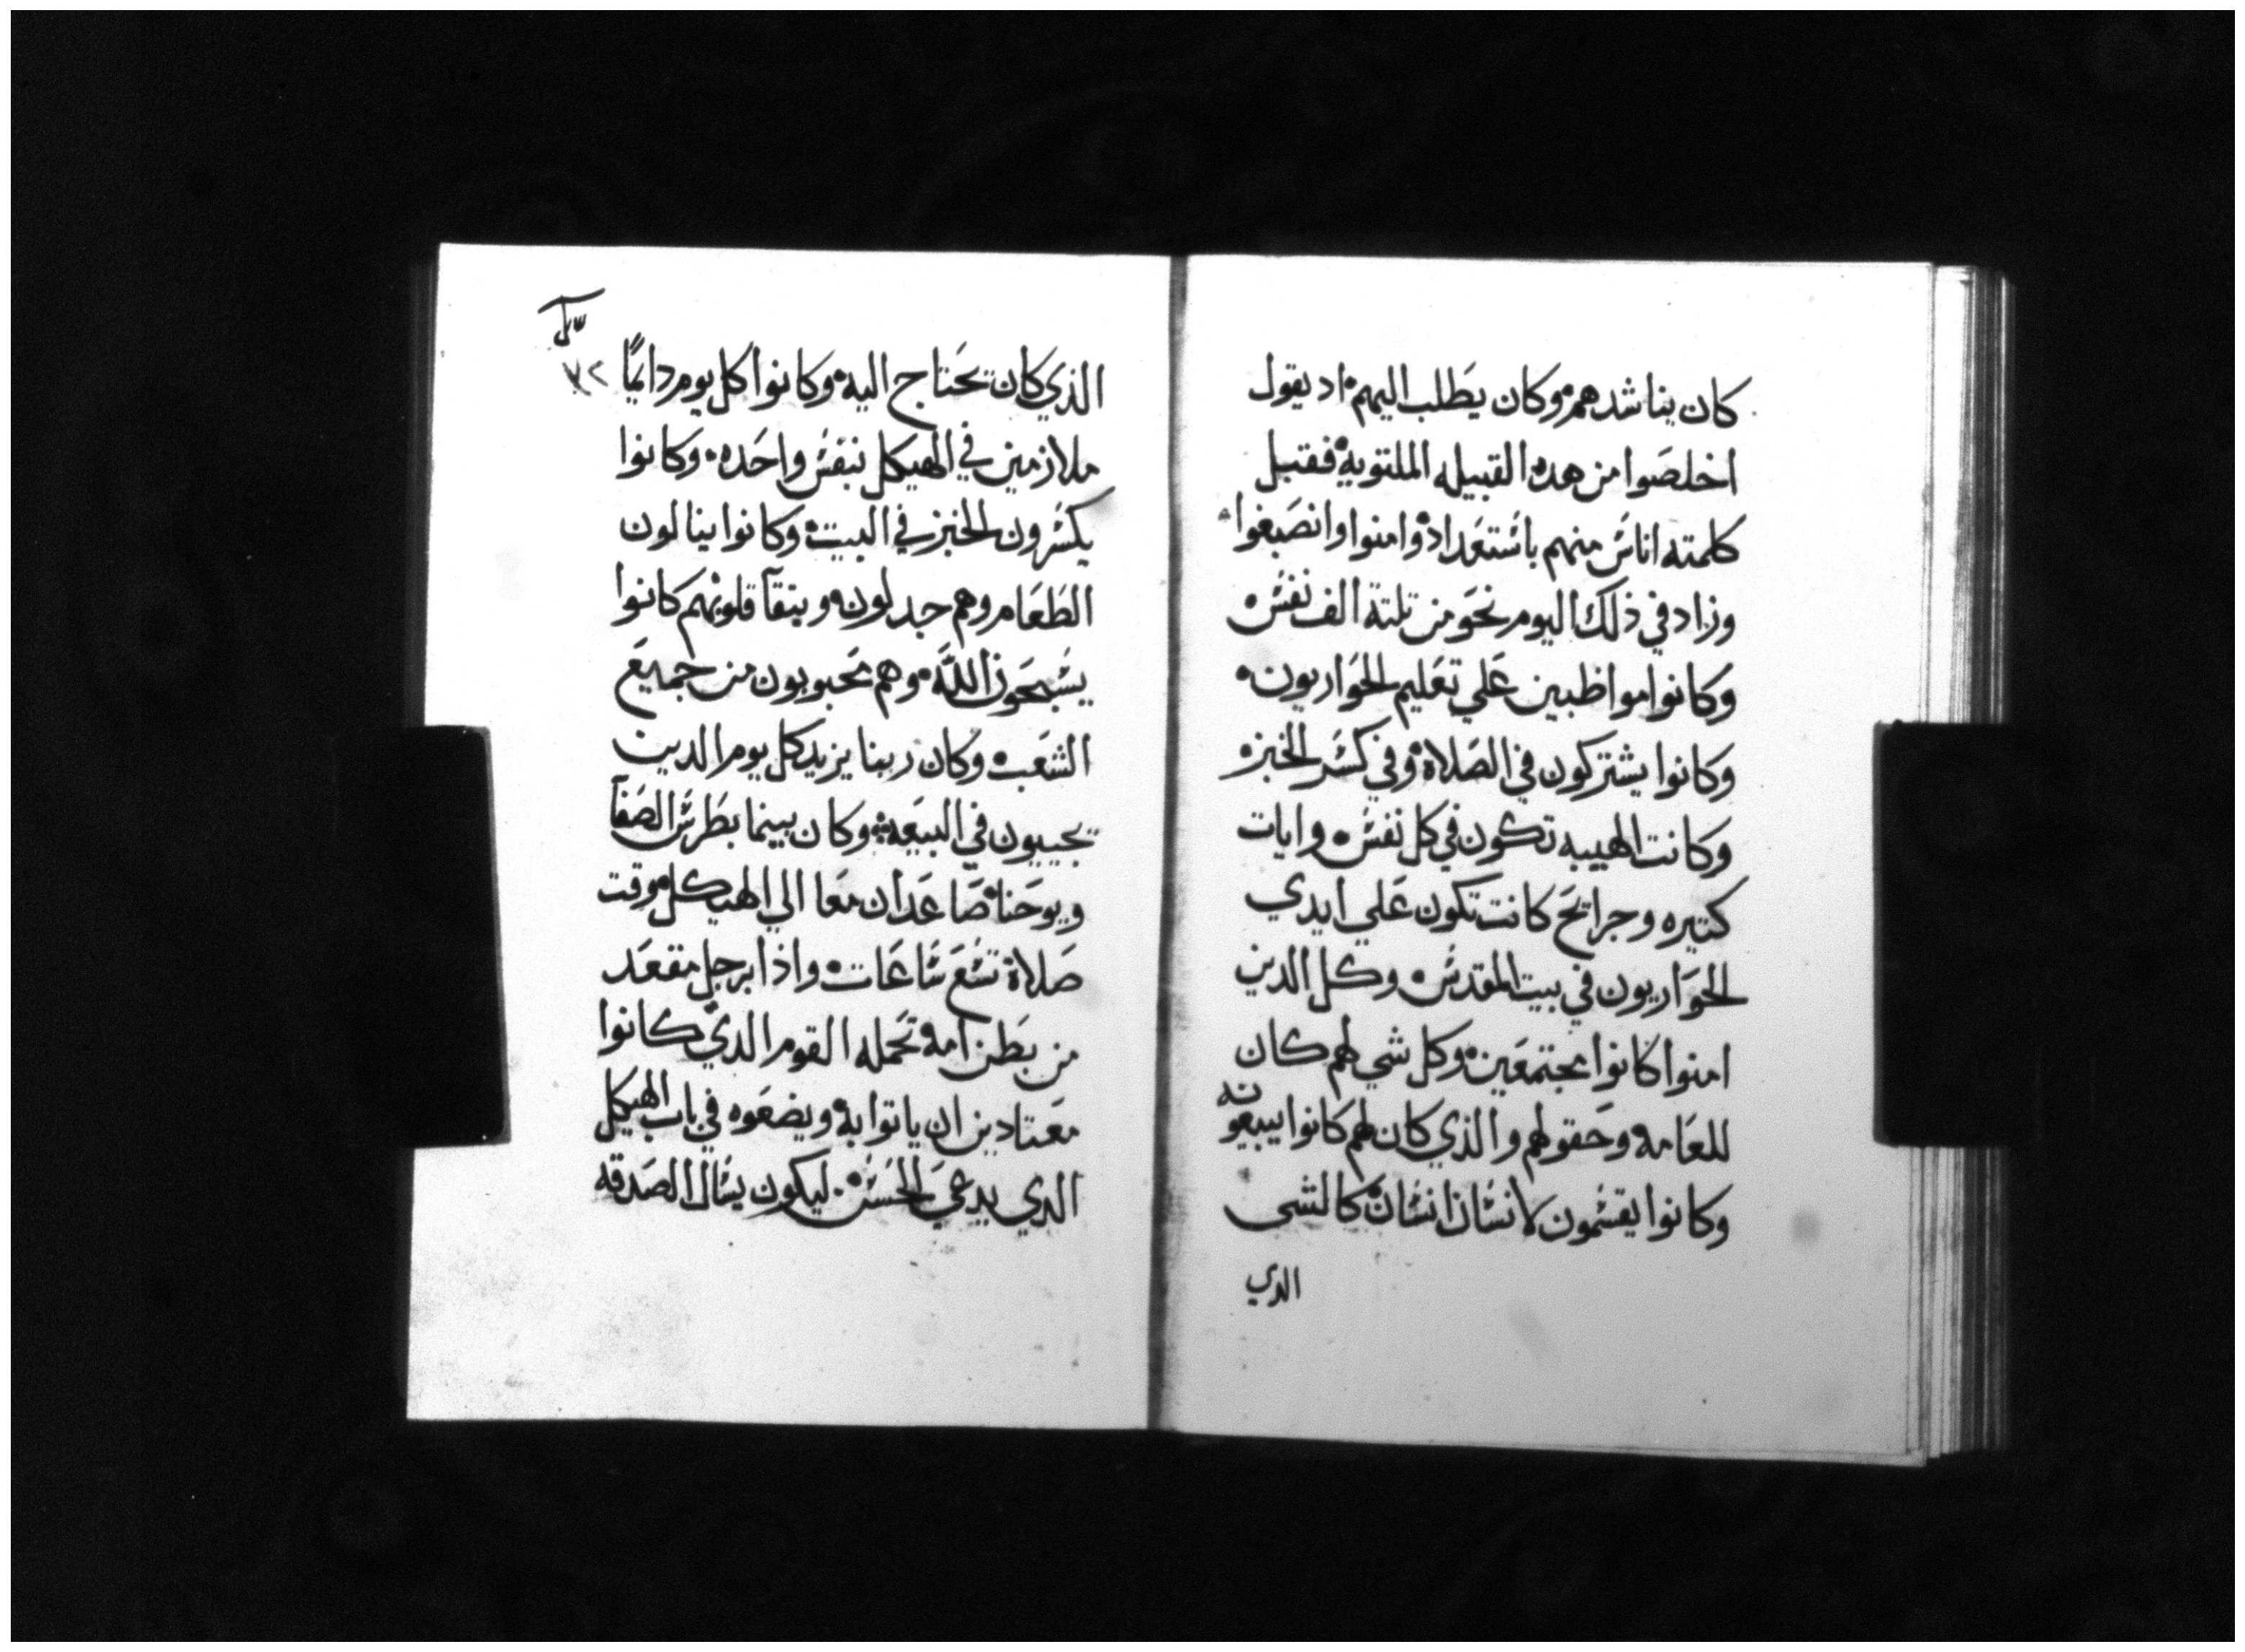 كان يناشدهم وكان يطلب اليهم اد يقول
اخلصوا من هده القبيله الملتوية فقتبل
كلمته اناس منهم باستعداد وامنوا وانصبغوا
وزاد في ذلك اليوم نحو من تلتة الف نفس
وكانوا مواظبين علي تعليم الحواريون
وكانوا يشتركون في الصلاة وفي كسر الخبز
وكانت الهيبه تكون في كل نفس وايات
كتيره وجرايح كانت تكون علي ايدي
الحواريون في بيت المقدس وكل الدين
امنوا كانوا مجتمعين وكل شي لهم كان
للعامه وحقولهم والذي كان لهم كانوا يبيعونه
وكانوا يقسمون لانسان انسان كالشى
الدي
الذي كان يحتاج اليه وكانوا كل يوم دايمًا
٧٢
ملازمين في الهيكل بنفس واحده وكانوا
يكسرون الخبز في البيت وكانوا ينالون
الطعام وهم جدلون وبنقآ قلوبهم كانوا
يسبحون اللَّه وهم محبوبون من جميع
الشعب وكان ربنا يزيد كل يوم الدين
يحييون في البيعة وكان بينما بطرس الصفآ
ويوحنا صاعدان معا الي الهيكل وقت
صلاة تسع ساعات واذا برجل مقعد
من بطن امه تحمله القوم الدي كانوا
معتادين ان ياتوا به ويضعوه في باب الهيكل
الدي يدعي الحسن ليكون يسال الصدقه